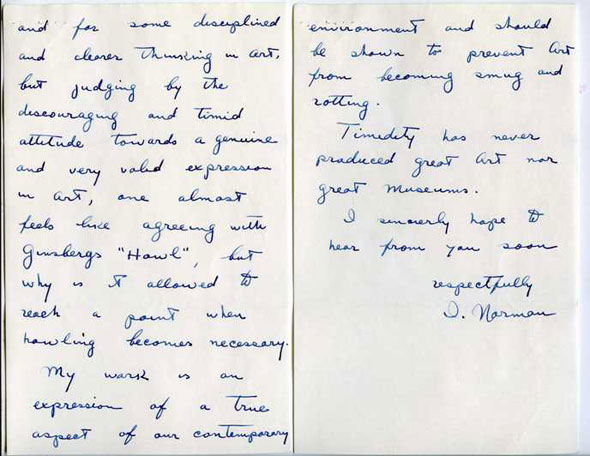 and for some disciplined
and clearer thinking in art,
but judging by the
discouraging and timid
attitude towards a genuine
and very valid expression
in art, one almost
feels like agreeing with
Ginsbergs "Howl", but
why is it allowed to
reach a point when
howling becomes necessary.
My work is an
expression of a true
aspect of our contemporary
environment and should
be shown to prevent Art
from becoming smug and
rotting.
Timidity has never
produced great Art nor
great Museums.
I sincerly hope to
hear from you soon
respectfully
I. Norman